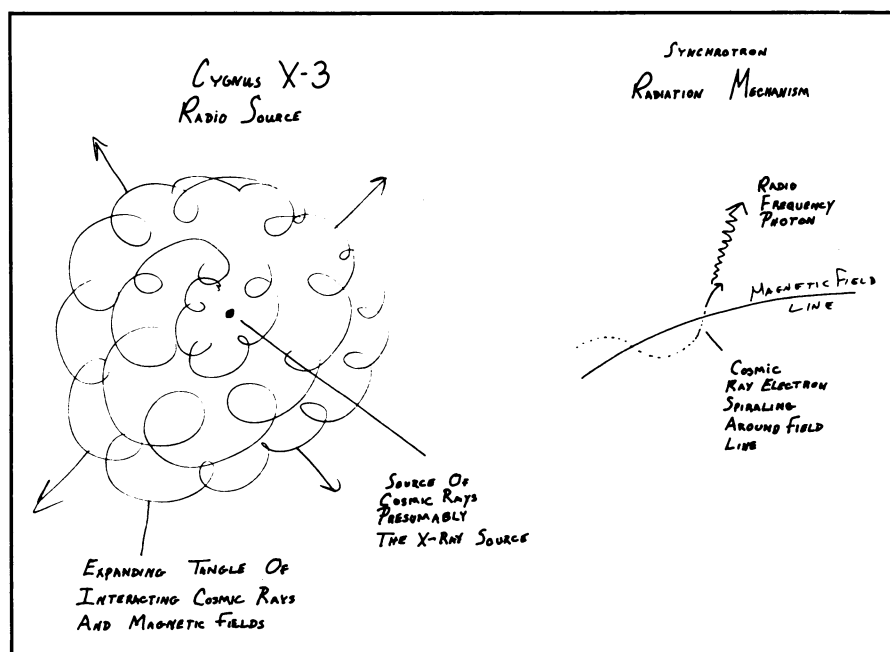 CYGNUS X-3
RADIO SOURCE
SOURCE OF
COSMIC RAYS
PRESUMABLY
THE X-RAY SOURCE
EXPANDING TANGLE OF
INTERACTING COSMIC RAYS
AND MAGNETIC FIELDS
SYNCHROTRON
RADIATION MECHANISM
RADIO
FREQUENCY
PHOTON
MAGNETIC FIELD
LINE
COSMIC
RAY ELECTRON
SPIRALING
AROUND FIELD
LINE